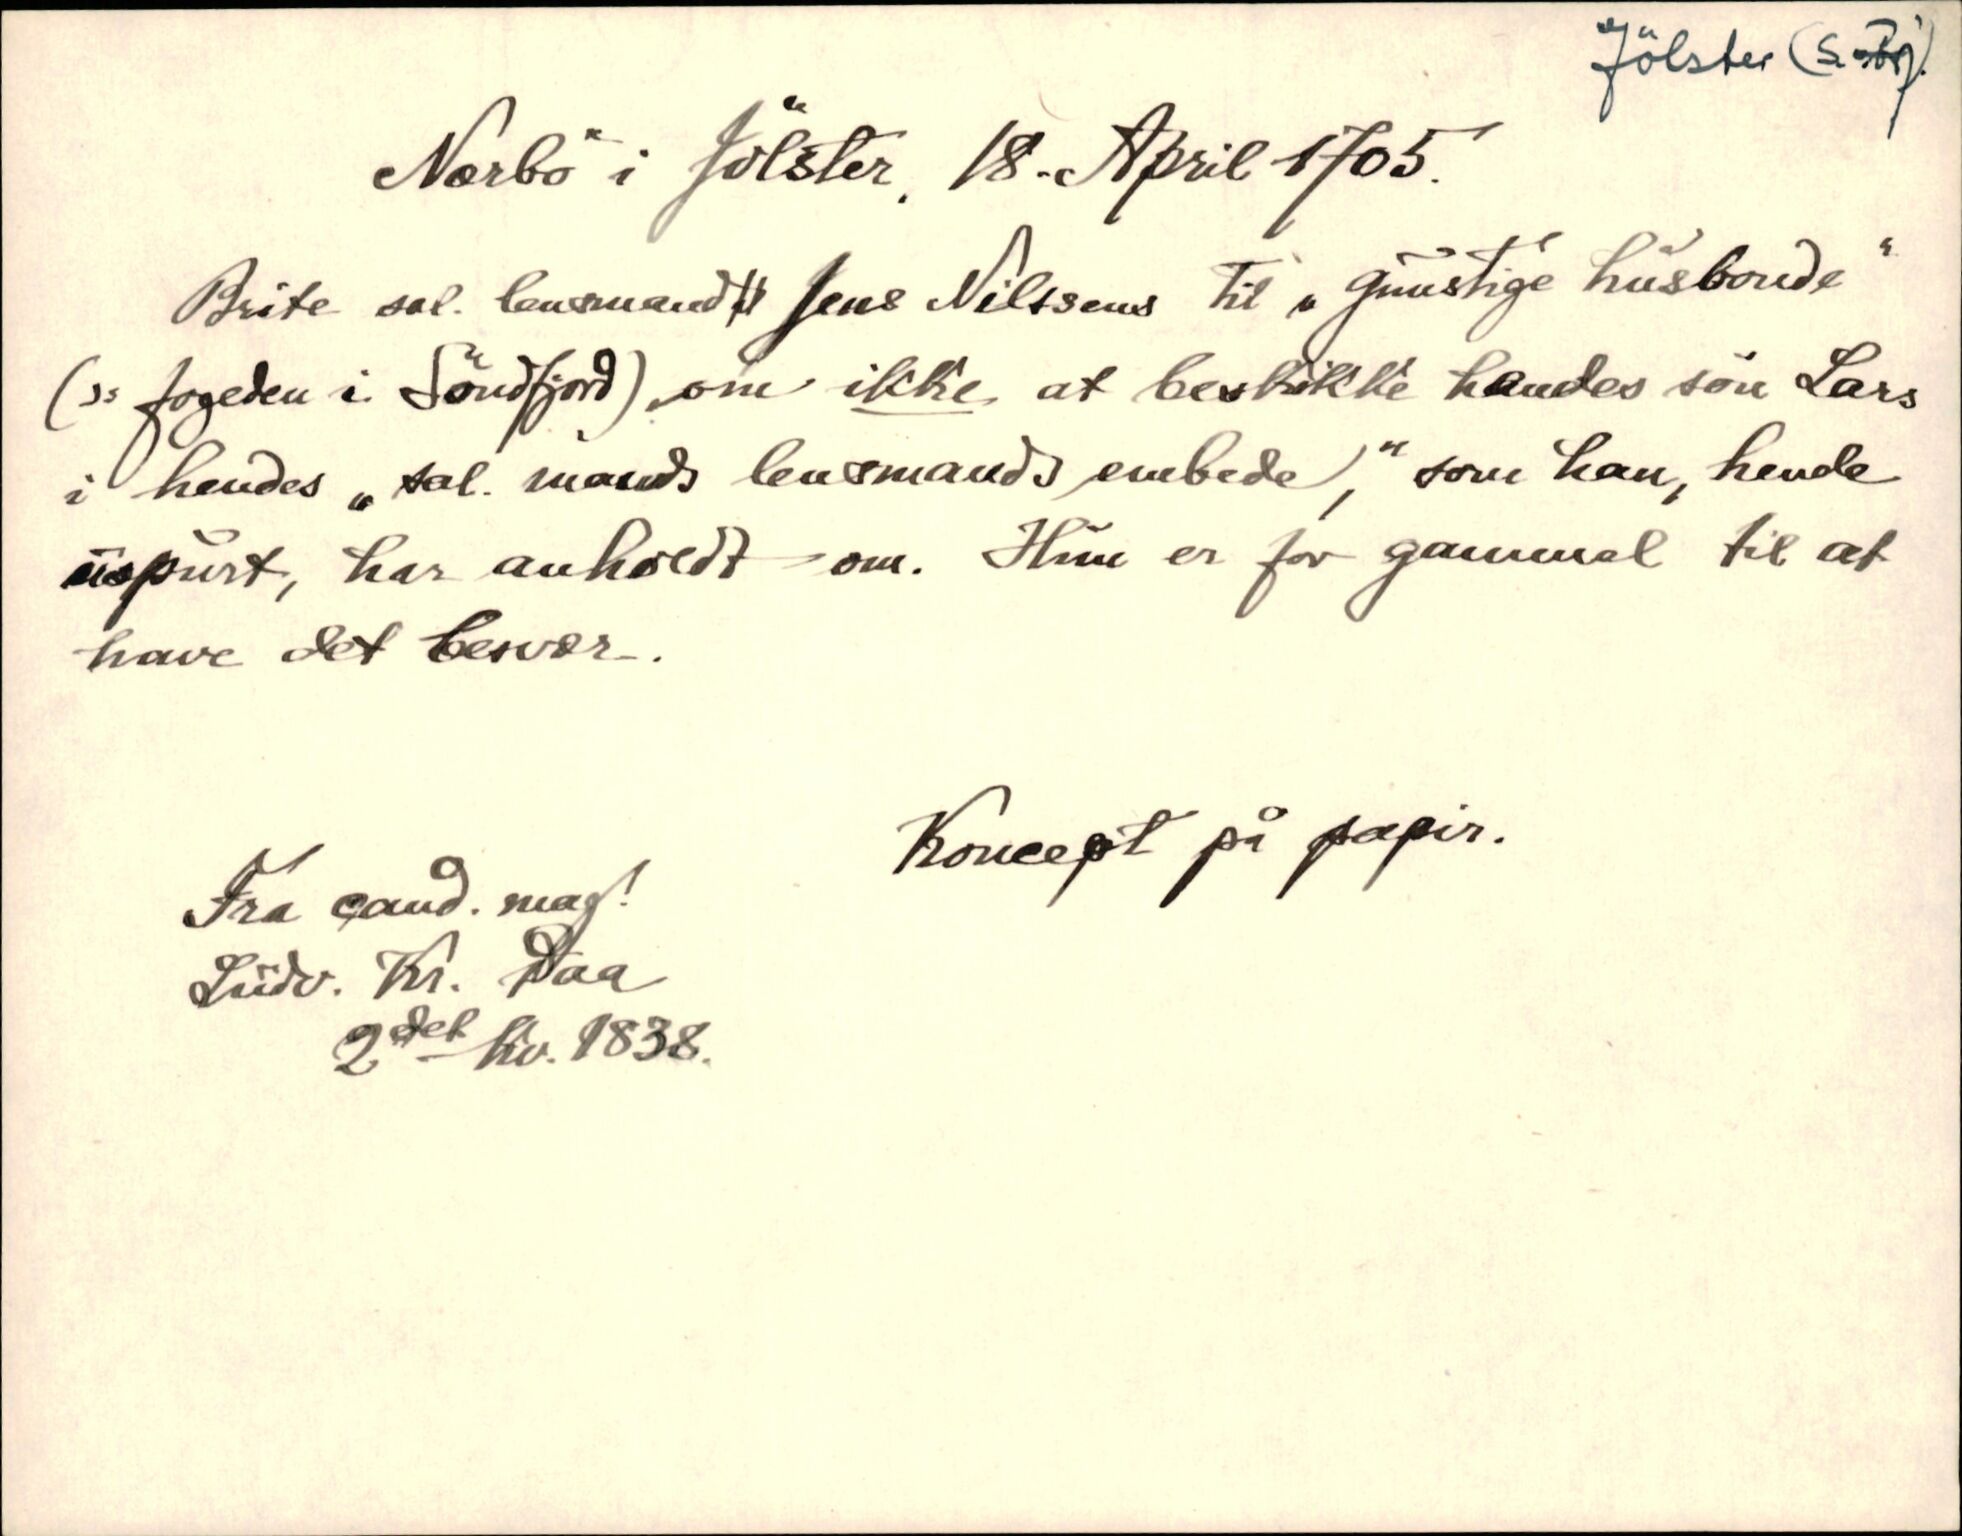 Jölster (S.
Nærbö i Jölster, 18. April 1705.
Brite sal. lensmand Jens Nilssens til „günstige hüsbonde“
(ɔ: fogeden i Söndfjord) om ikke at beskikke hendes sön Lars
i hendes „sal. mands lensmands embede“, som han, hende
üspürt, har anholdt om. Hün er for gammel til at
have det besvær.
Koncept på papir.
Fra cand. mag.
Lüdv. Kr. Daa
2det kv. 1838.